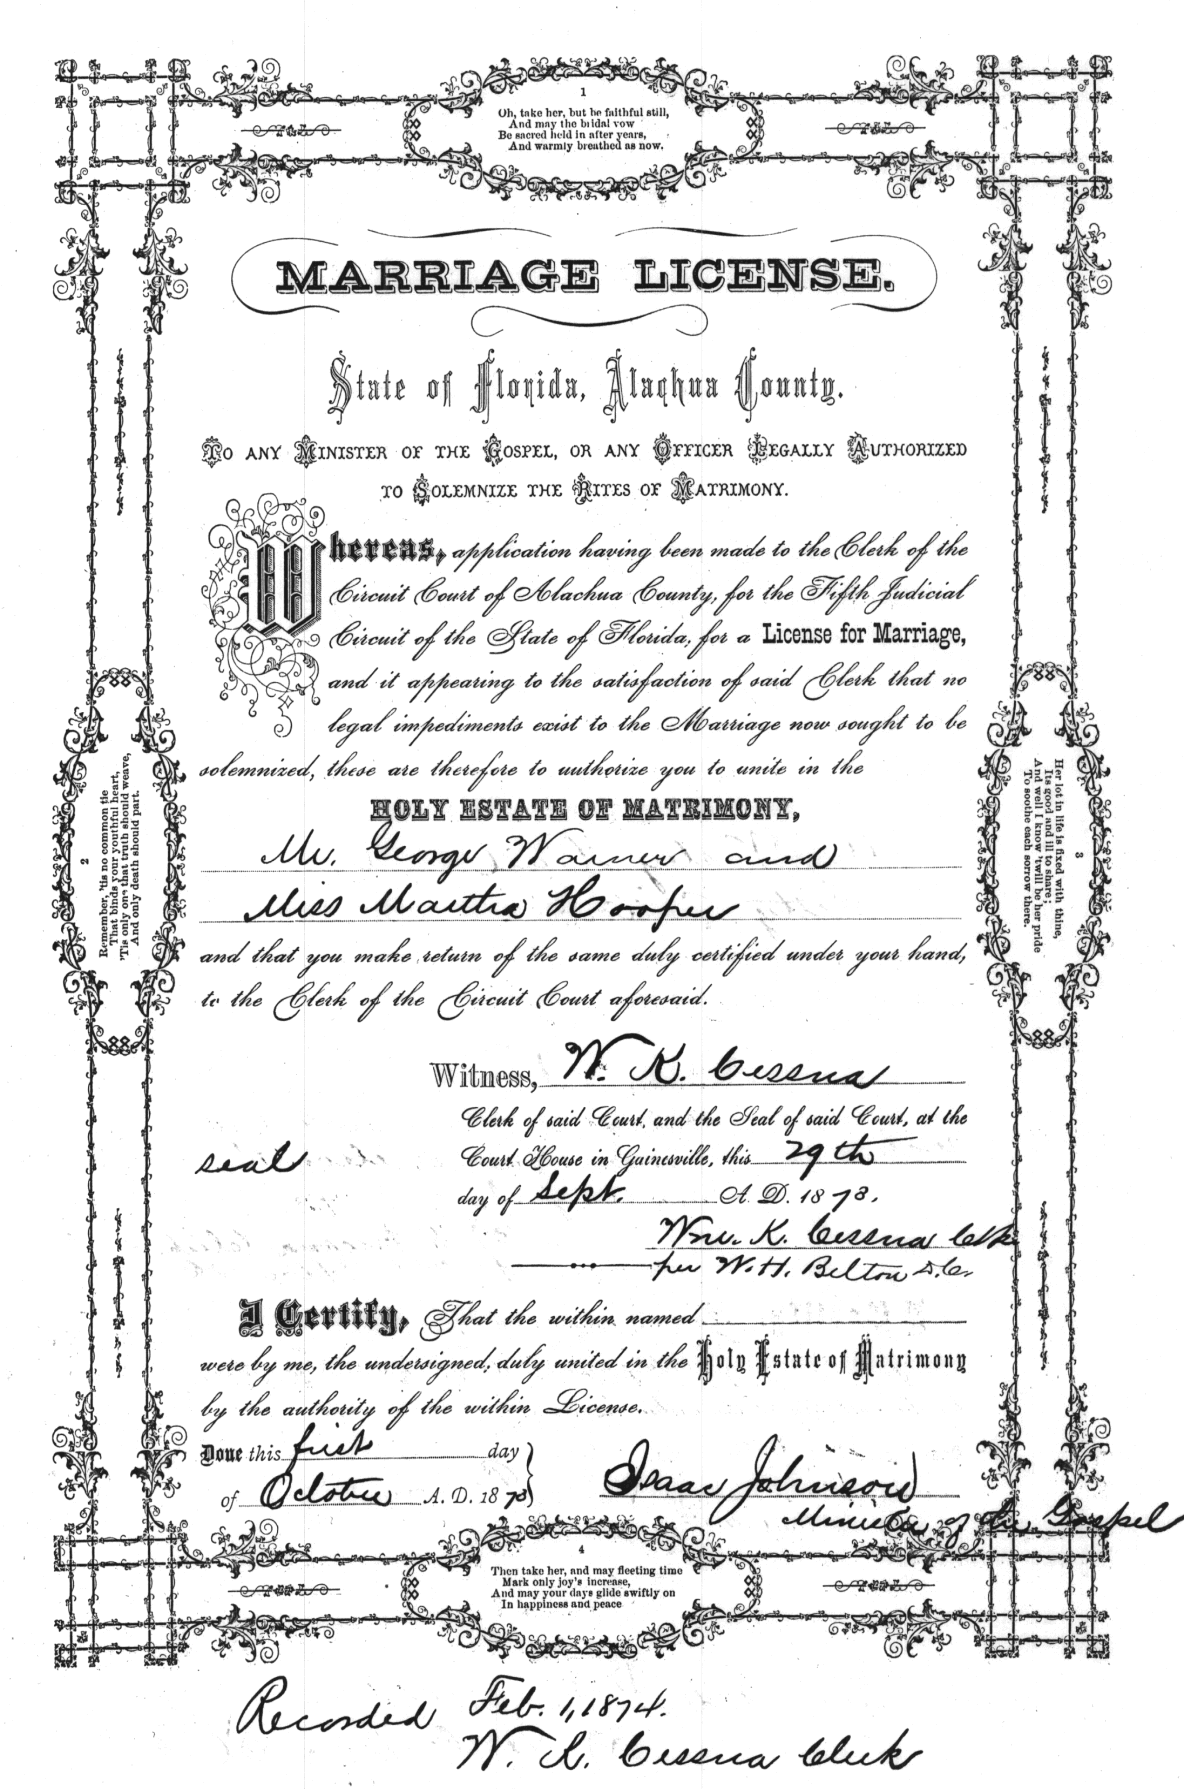 1
Oh, take her, but be faithful still,
And may the bridal vow
Be sacred held in after years,
And warmly breathed as now.
MARRIAGE LICENSE.
State of Florida, Alachua County.
TO ANY MINISTER OF THE GOSPEL, OR ANY OFFICER LEGALLY AUTHORIZED
TO SOLEMNIZE THE RITES OF MATRIMONY.
Whereas, application having been made to the Clerk of the
Circuit Court of Alachua County, for the Fifth Judicial
Circuit of the State of Florida, for a License for Marriage,
and it appearing to the satisfaction of said Clerk that no
legal impediments exist to the Marriage now sought to be
solemnized, these are therefore to authorize you to unite in the
HOLY ESTATE OF MATRIMONY,
Mr. George Warner and
Miss Martha Hooper
and that you make return of the same duly certified under your hand,
to the Clerk of the Circuit Court aforesaid.
2
Remember, 'tis no common tie
That binds your youthful heart,
'Tis only one that truth should weave,
And only death should part.
3
Her lot in life is fixed with thine,
Its good and ill to share;
And well I know 'twill be her pride
To soothe each sorrow there.
Witness, W. K. Cessna
Clerk of said Court, and the Seal of said Court, at the
seal Court House in Gainesville, this 29th
day of Sept. A. D. 1873.
Wm. K. Cessna Clk
per W. H. Belton D.C.
I Certify, That the within named
were by me, the undersigned, duly united in the Holy Estate of Matrimony
by the authority of the within License.
Done this first day
of October A. D. 1873
Isaac Johnson
Minister of the Gospel
4
Then take her, and may fleeting time
Mark only joy's increase,
And may your days glide swiftly on
In happiness and peace
Recorded Feb. 1, 1874.
W. K. Cessna Clerk